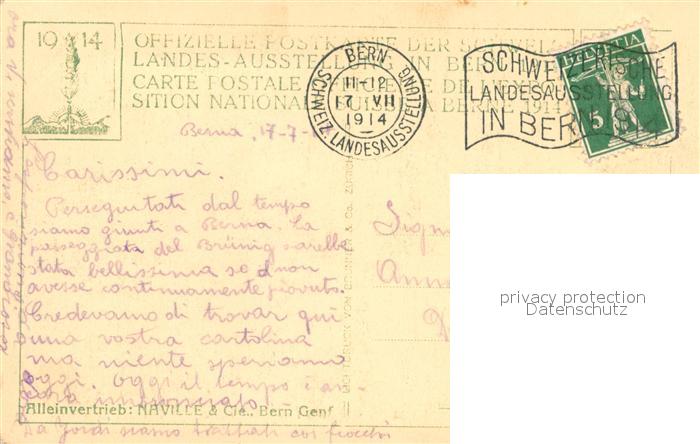 1914
OFFIZIELLE POSTKARTE DER SCHWEIZ.
LANDES-AUSSTELLUNG IN BERN 1914
CARTE POSTALE OFFICIELLE DE L'EXPO
SITION NATIONALE SUISSE A BERNE 1914
BERN
11-12
17. VII
1914
SCHWEIZ. LANDESAUSSTELLUNG
SCHWEIZERISCHE
LANDESAUSSTELLUNG
IN BERN
HELVETIA
5
Berna, 17-7-14
Carissimi.
Perseguitati dal tempo
siamo giunti a Berna. La
passeggiata del Brünig sarebbe
stata bellissima se non
avesse continuamente piovuto.
Credevamo di trovar qui
una vostra cartolina
ma niente speriamo
oggi. Oggi il tempo è an-
cora
Alleinvertrieb: NAVILLE & Cie., Bern Genf
Da Jordi siamo trattati coi fiocchi
Sign
Ann
privacy protection
Datenschutz